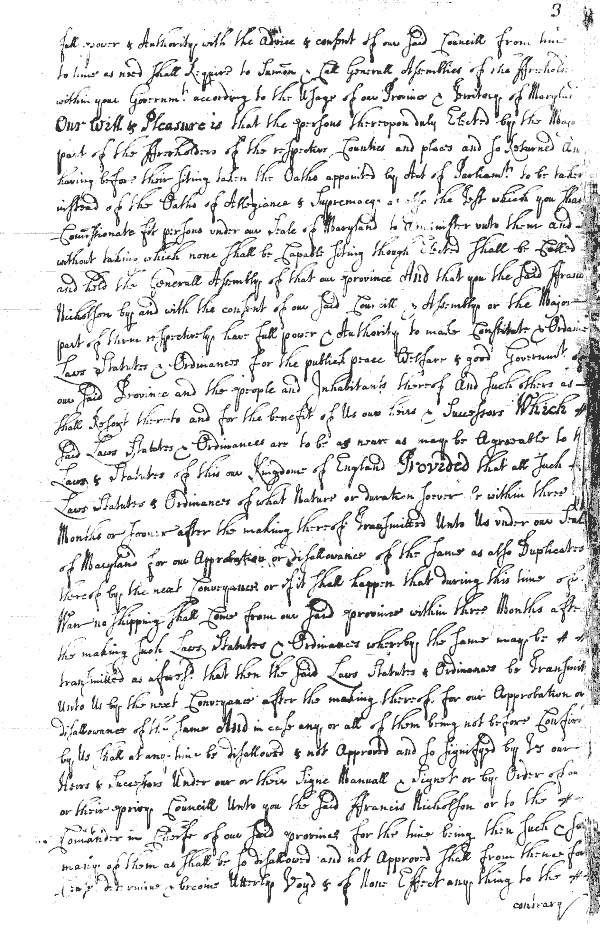 3
full power & Authority with the Advice & consent of our said Councill from time
to time as need shall Require to Sumon & Call Generall Assemblies of the ffreehold
within your Governmt according to the Usage of our Province & Territory of Maryland
Our Will & Pleasure is that the persons thereupon duly Elected by the Major
part of the ffreeholders of the respective Counties and places and so Returned An
having before their sitting taken the Oaths appointed by Act of Parliamt to be taken
instead of the Oaths of Allegiance & Supremacy as also the Test which you shall
Comissionate fit persons under our Seale of Maryland to administer unto them and
without taking which none shall be Capable sitting though Elected shall be Called
and held the Generall Assembly of that our province And that you the said ffrancis
Nicholson by and with the consent of our said Councill & Assembly or the Major
part of them respectively have full power & Authority to make Constitute & Ordaine
Laws Statutes & Ordinances for the publick peace Welfare & good Governmt of
our said Province and the people and Inhabitants thereof And such others as
shall Resort thereto and for the benefit of Us our heirs & Successors Which
said Laws Statutes & Ordinances are to be as near as may be Agreeable to th
Laws & Statutes of this our Kingdome of England Provided that all such
Laws Statutes & Ordinances of what Nature or duration soever be within three
Months or sooner after the making thereof Transmitted Unto Us under our Seal
of Maryland for our Approbation or disallowance of the same as also Duplicates
thereof by the next Conveyance or if it shall happen that during this time of
Warr no shipping shall Come from our said province within three Months afte
the making such Laws Statutes & Ordinances whereby the same may be
transmitted as aforesd that then the said Laws Statutes & Ordinances be Transmitt
Unto Us by the next Conveyance after the making thereof for our Approbation or
disallowance of the same And in case any or all of them being not before Confirm
by Us shall at any time be disallowed & not Approved and so signifyed by Us our
Heirs & Successors Under our or their Signe Manuall & Signet or by Order of our
or their privy Councill Unto you the said ffrancis Nicholson or to the
Comander in Cheife of our said province for the time being then such & so
many of them as shall be so disallowed and not Approved shall from thence for
Cease determine & become Utterly Voyd & of None Effect any thing to the
contrary